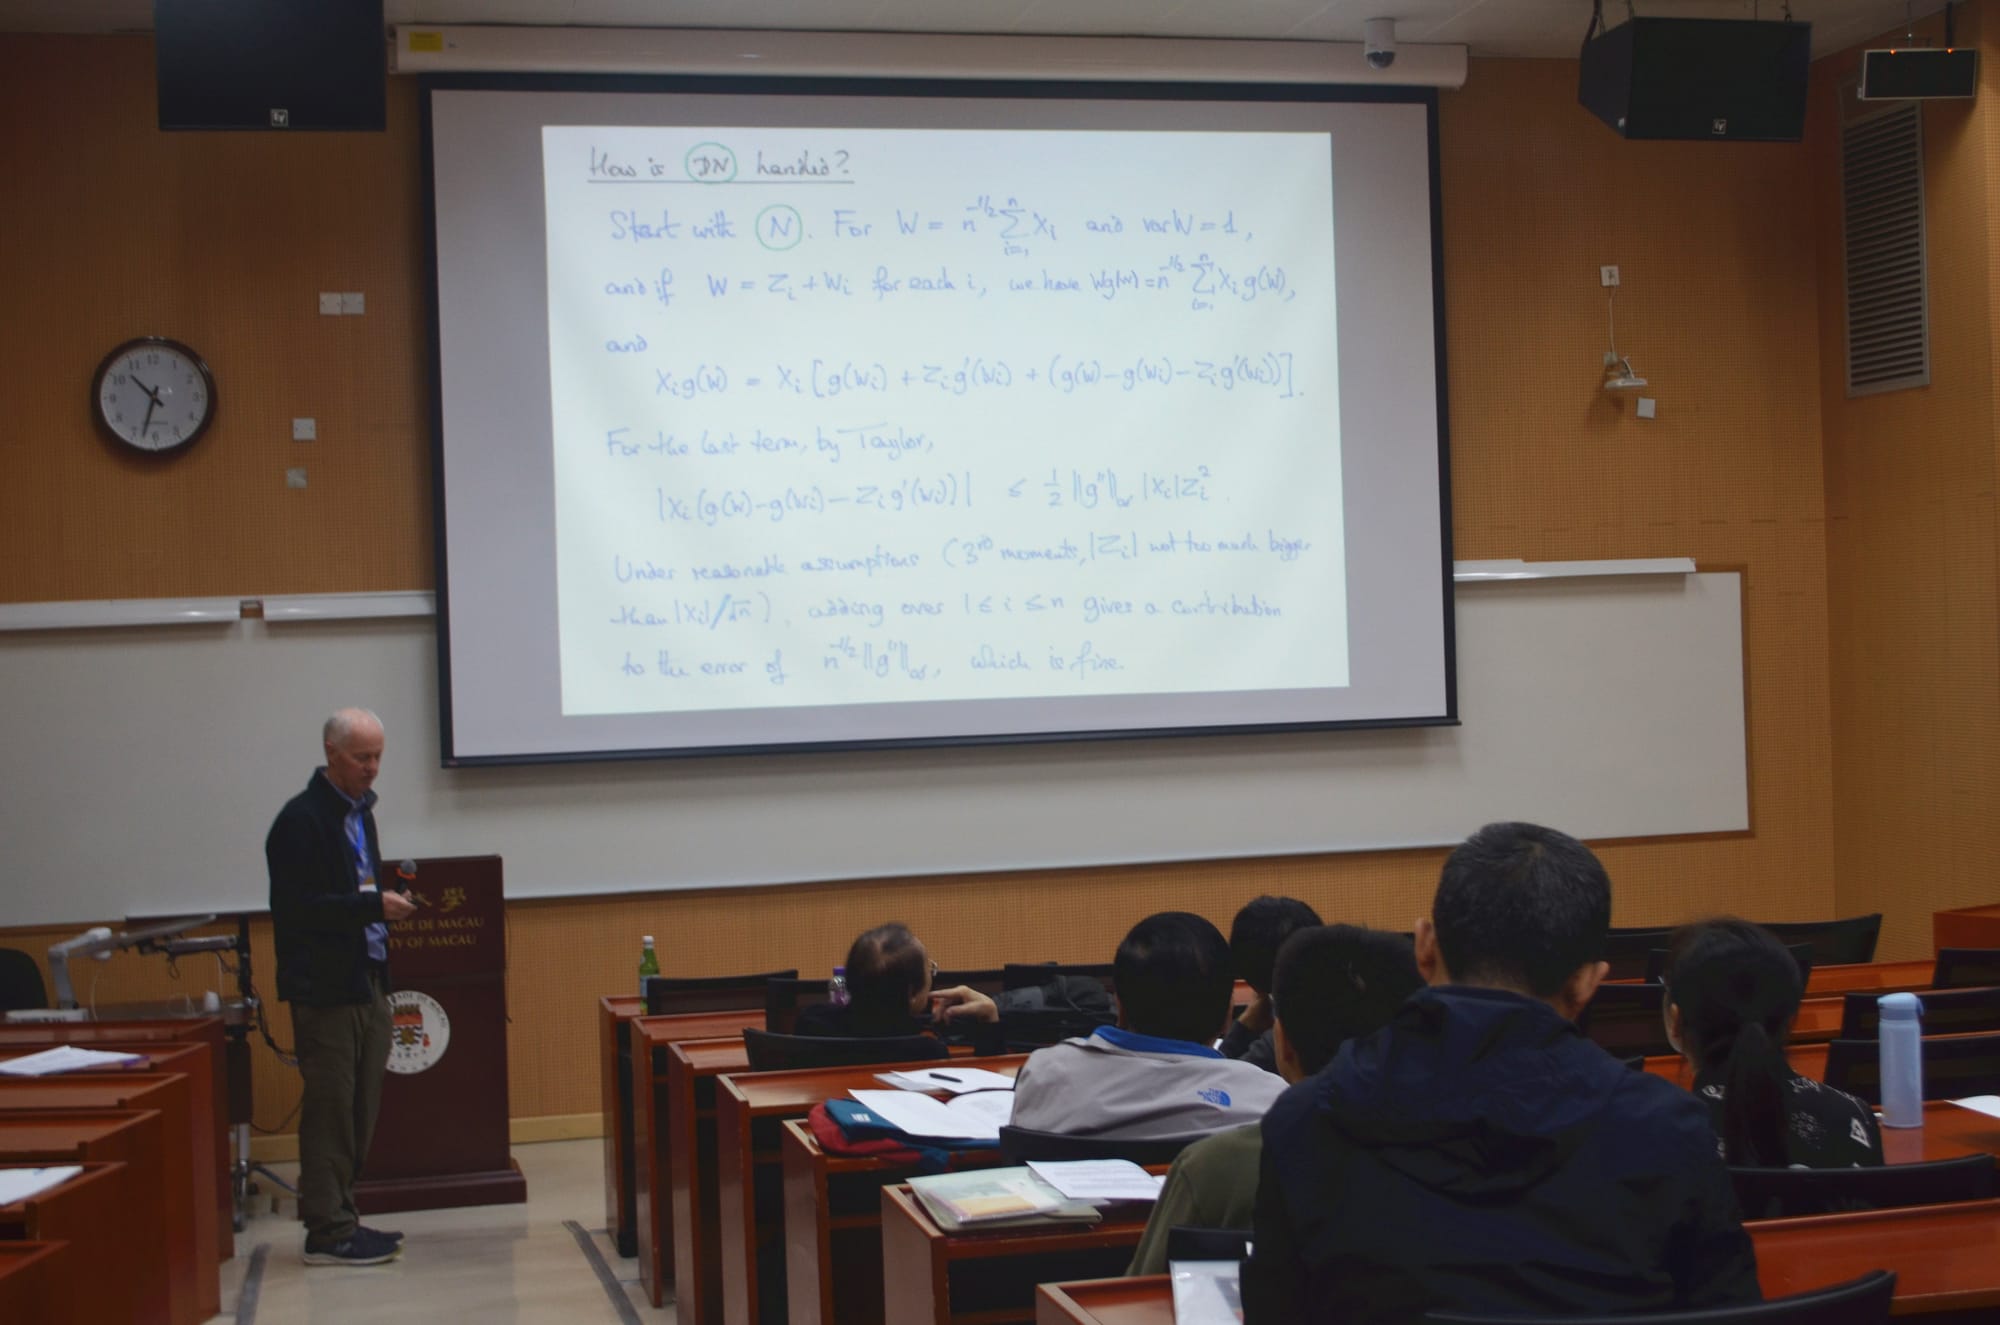 How is DN handled?
Start with N. For W = n^{-1/2} ∑_{i=1}^{n} X_i and var W = 1,
and if W = Z_i + W_i for each i, we have Wg(W) = n^{-1/2} ∑_{i=1}^{n} X_i g(W),
and
X_i g(W) = X_i [g(W_i) + Z_i g'(W_i) + (g(W) − g(W_i) − Z_i g'(W_i))].
For the last term, by Taylor,
|X_i (g(W) − g(W_i) − Z_i g'(W_i))| ≤ 1/2 ‖g''‖_∞ |X_i| Z_i^2.
Under reasonable assumptions (3rd moments, |Z_i| not too much bigger
than |X_i|/√n), adding over 1 ≤ i ≤ n gives a contribution
to the error of n^{-1/2} ‖g''‖_∞, which is fine.
12
1
2
3
4
5
6
7
8
9
10
11
EV
EV
大學
ADE DE MACAU
TY OF MACAU
THE NORTH FACE